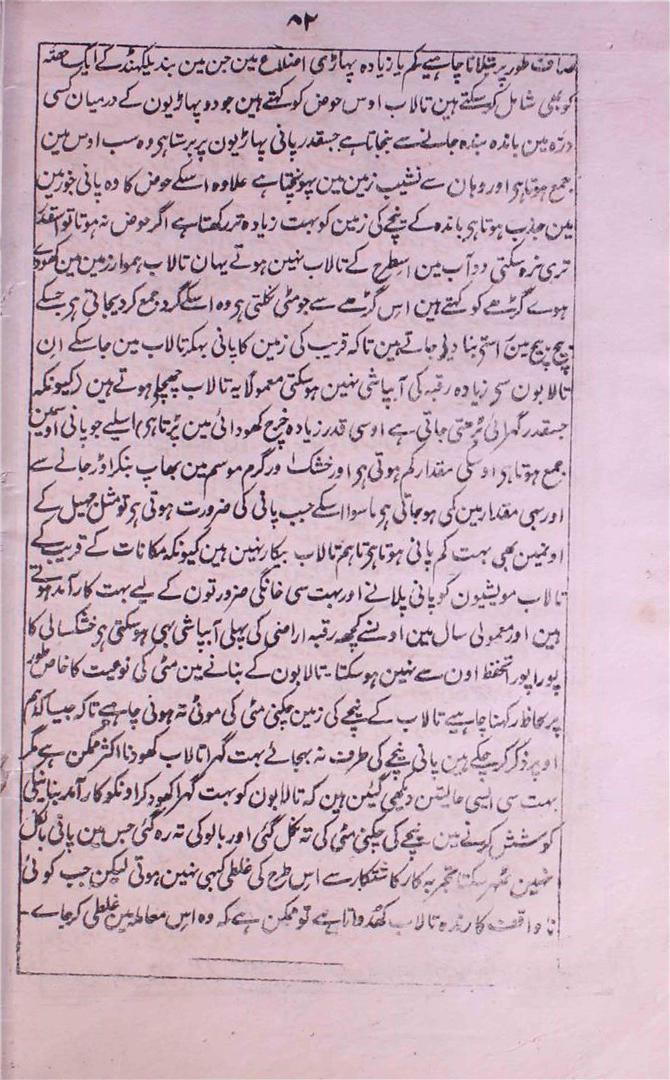 ۸۲
صاف طور پر بتلانا چاہیے کم یا زیادہ پہاڑی اضلاع مین جن مین بندیلکھنڈ کے ایک حصہ
کو بھی شامل کر سکتے ہین تالاب اوس حوض کو کہتے ہین جو دو پہاڑیون کے درمیان کسی
درہ مین باندہ بندہ جانے سے بنجاتا ہے جسقدر پانی پہاڑیون پر برستا ہی وہ سب اوس مین
جمع ہوتا ہی اور وہان سے نشیب زمین مین پہونچتا ہے علاوہ اسکے حوض کا وہ پانی جو زمین
مین جذب ہوتا ہی باندہ کے نیچے کی زمین کو بہت زیادہ تر رکھتا ہے اگر حوض نہ ہوتا تو اسقدر
تری نرہ سکتی دوآب مین اسطرح کے تالاب نہین ہوتے یہان تالاب ہموار زمین مین کھودے
ہوے گڑھے کو کہتے ہین اس گڑھے سے جو مٹی نکلتی ہی وہ اسکے گرد جمع کر دیجاتی ہی جسکے
بیچ بیچ مین راستے بنا دیے جاتے ہین تاکہ قریب کی زمین کا پانی بہکر تالاب مین جا سکے ان
تالابون سی زیادہ رقبہ کی آبپاشی نہین ہو سکتی معمولاً یہ تالاب چھچلے ہوتے ہین (کیونکہ
جسقدر گہرائی بڑھتی جاتی ہے اوسی قدر زیادہ خرچ کھودائی مین پڑتا ہی) اسلیے جو پانی اوسمین
جمع ہوتا ہی اوسکی مقدار کم ہوتی ہی اور خشک اور گرم موسم مین بھاپ بنکر اوڑ جانے سے
اور بھی مقدار مین کمی ہو جاتی ہی ماسوا اسکے جب پانی کی ضرورت ہوتی ہی تو مثل جھیل کے
اونمین بھی بہت کم پانی ہوتا ہی تاہم تالاب بیکار نہین ہین کیونکہ مکانات کے قریب کے
تالاب مویشیون کو پانی پلانے اور بہت سی خانگی ضرورتون کے لیے بہت کارآمد ہوتے
ہین اور معمولی سال مین اونسے کچھ رقبہ اراضی کی پہلی آبپاشی بھی ہو سکتی ہی خشک سالی کا
پورا پورا تحفظ اون سے نہین ہو سکتا۔ تالابون کے بنانے مین مٹی کی نوعیت کا خاص طور
پر لحاظ رکھنا چاہیے تالاب کے نیچے کی زمین چکنی مٹی کی موٹی تہ ہونی چاہیے تاکہ جیسا کہ ہم
اوپر ذکر کر چکے ہین پانی نیچے کی طرف نہ بہجائے بہت گہرا تالاب کھودنا اکثر ممکن ہے مگر
بہت سی ایسی حالتین دیکھی گئین ہین کہ تالابون کو بہت گہرا کھود کر اونکو کارآمد بنانیکی
کوشش کرنے مین نیچے کی چکنی مٹی کی تہ نکل گئی اور بالو کی تہ رہ گئی جس مین پانی بالکل
نہین ٹھہر سکتا تجربہ کار کاشتکار سے اس طرح کی غلطی کبھی نہین ہوتی لیکن جب کوئی
ناواقف کارندہ تالاب کھدواتا ہے تو ممکن ہے کہ وہ اس معاملہ مین غلطی کر جاے۔